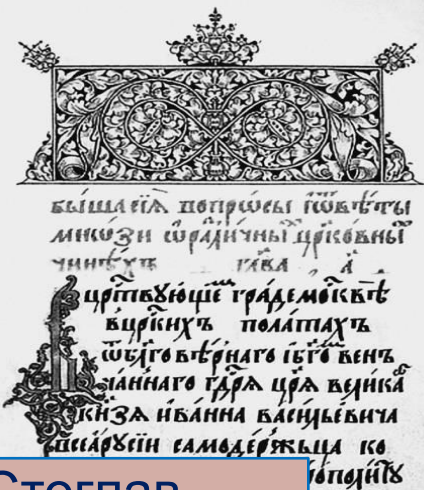 быша сїѧ вопрѡсы їѿвѣты
мнѡзи ѡразличны црко́вны
чинѣхъ глава а҃
Въ црⷭ҇твующе градемосквѣ
вцрⷭ҇кихъ полатахъ
ѿблгⷪ҇вѣрнаго їбг҃ѡ вѣн
чаннаго гдⷭ҇рѧ црѧ велика
кнѕѧ ивáнна васи́льевича
всеѧрусїи самоде́ржьца ко
Стоглав